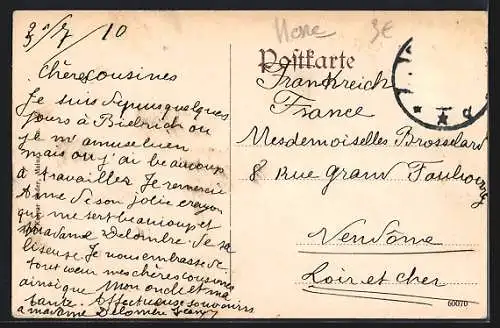 25/7/10
Chères cousines
Je suis depuis quelques
jours à Biebrich ou
je m'amuse bien
mais ou j'ai beaucoup
à travailler. Je remercie
Anne de son joli crayon
qui me sert beaucoup et
Madame Delombre de sa
liseuse. Je vous embrasse de
tout cœur mes chères cousines
ainsi que Mon oncle et ma
tante. Affectueux souvenirs
a madame Delombre
Postkarte
3€
Frankreich
France
Mesdemoiselles Brosselard
8 rue grand Faubourg
Vendôme
Loir et cher
60070